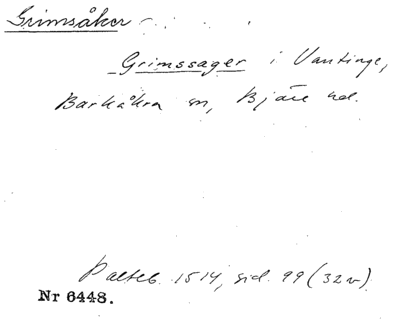 Grimsåker
Grimssager i Vantinge,
Barkåkra sn, Bjäre hd.
Palteb. 1514, sid. 99 (32v)
Nr 6448.